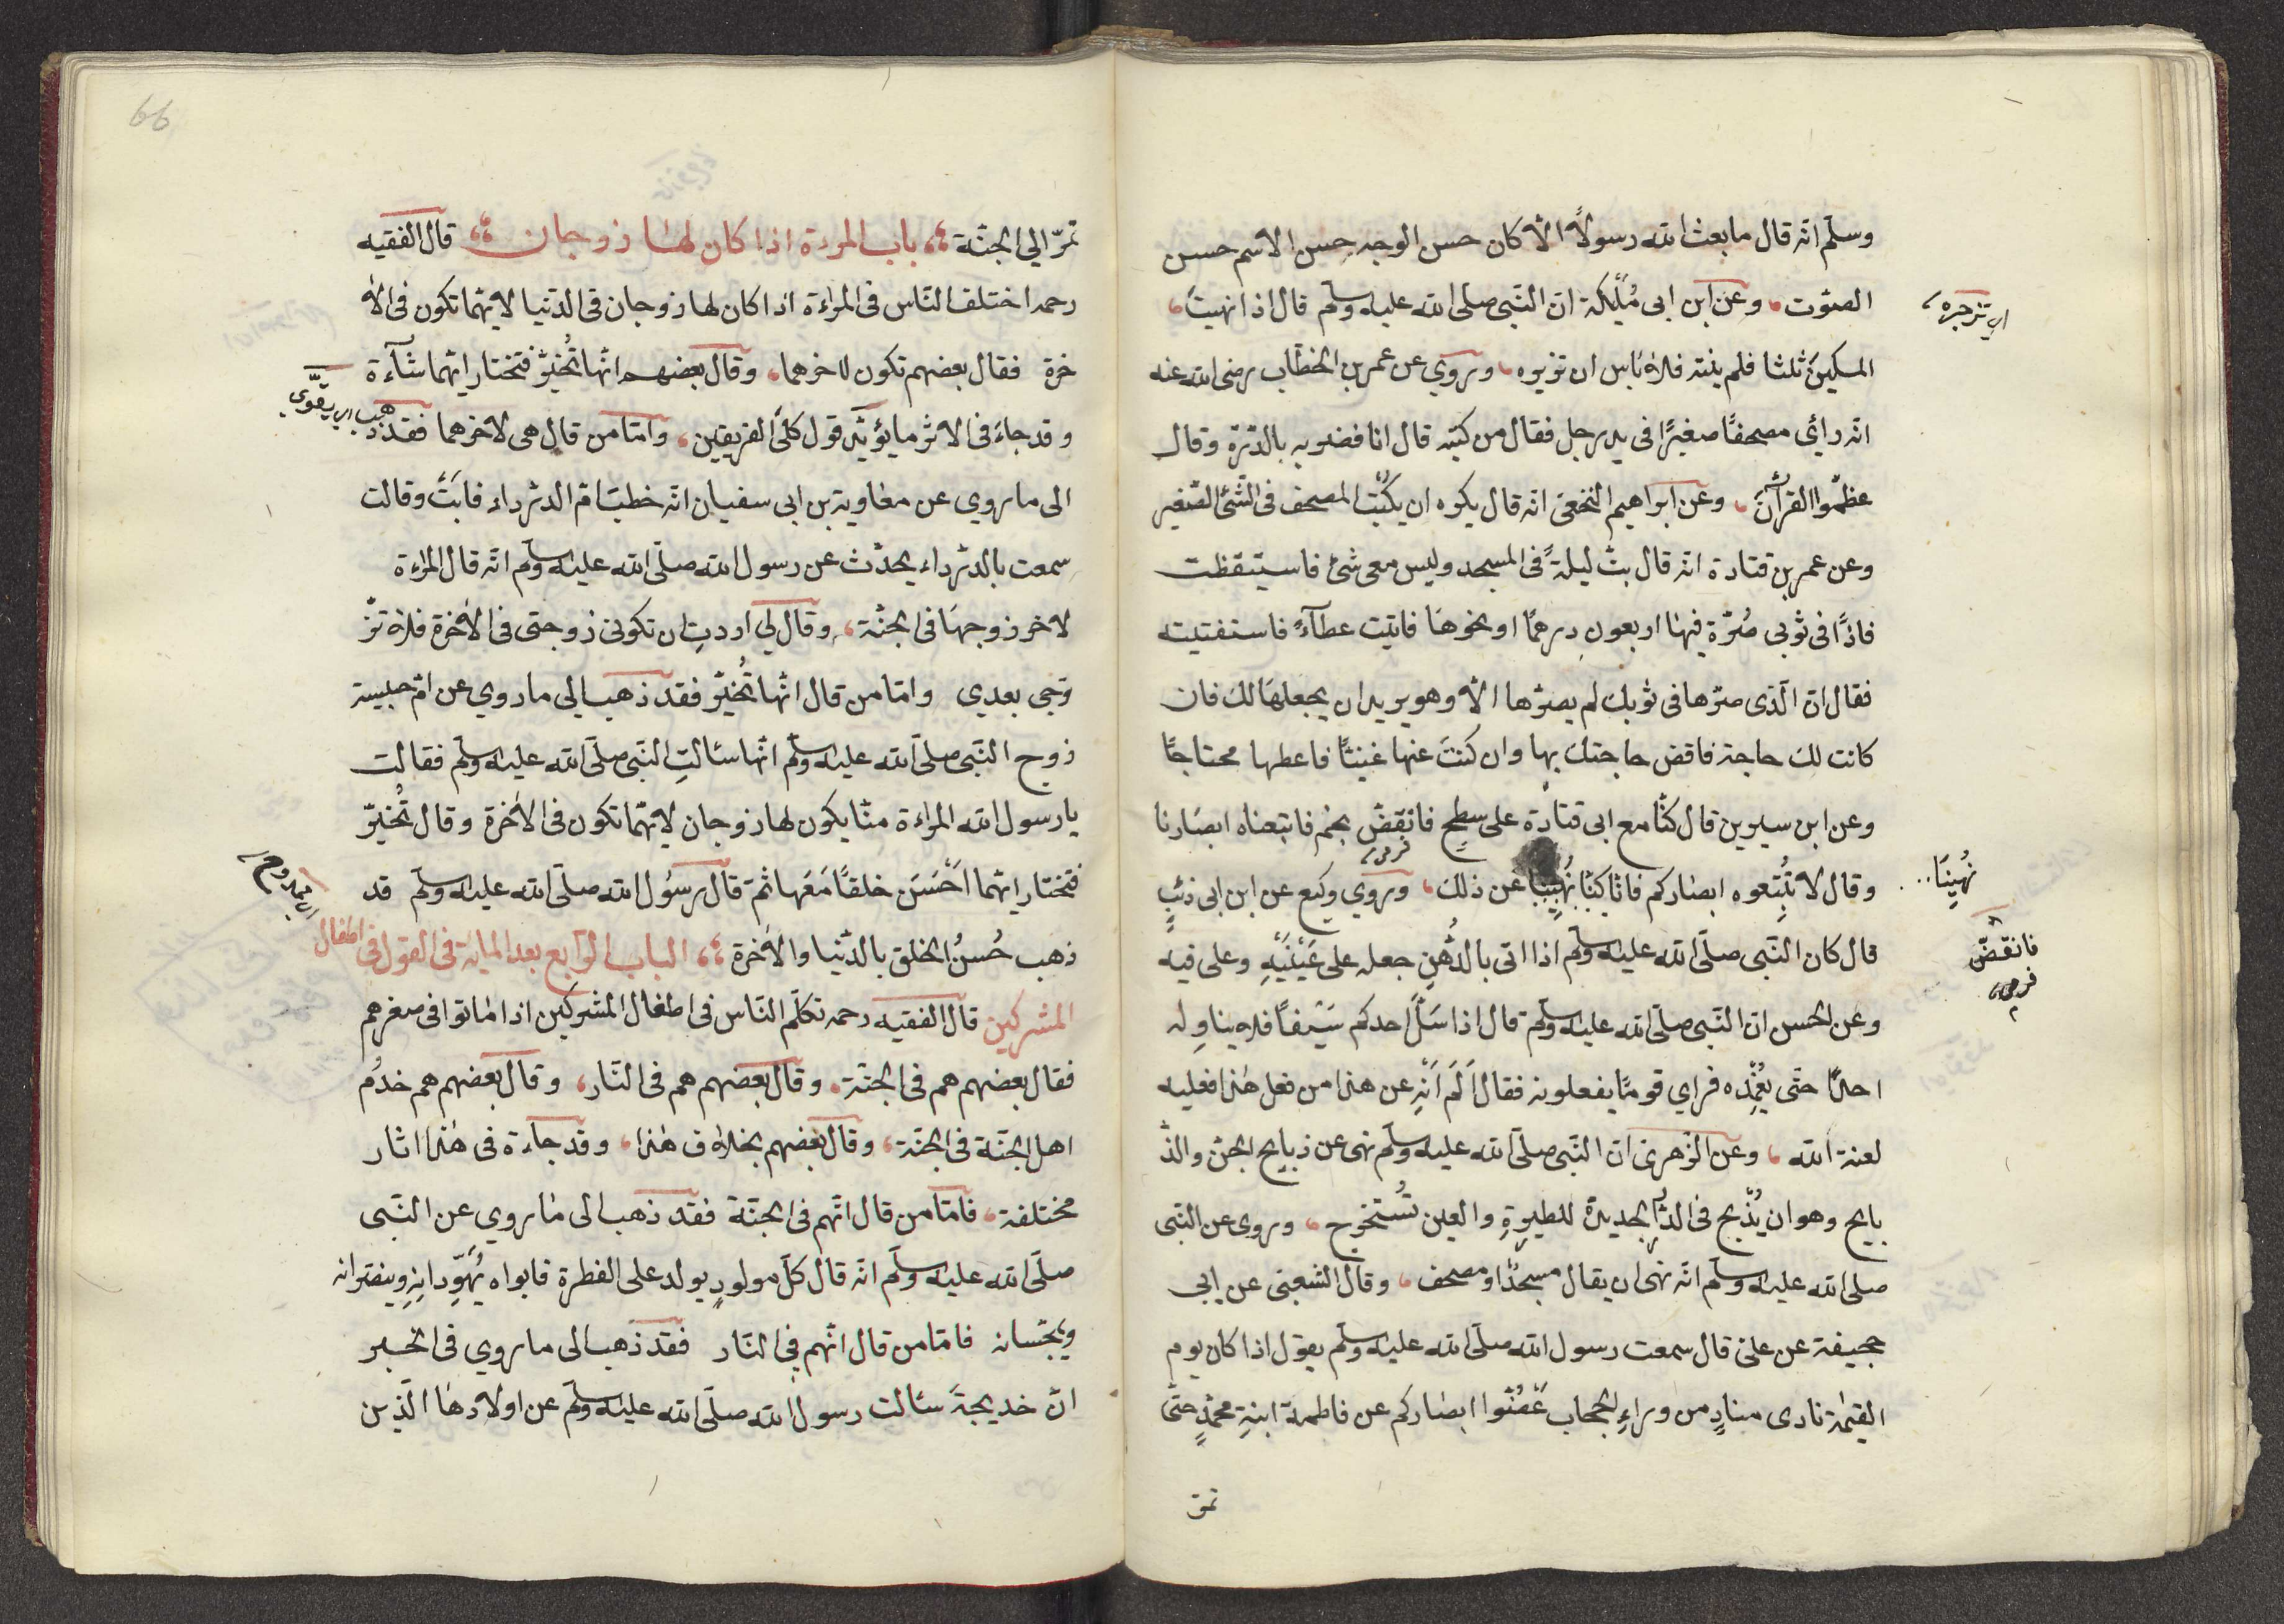 وسلم انه قال ما بعث الله رسولاً الا كان حسن الوجه حسن الاسم حسن
الصوت، وعن ابن ابى مُلَيْكة ان النبى صلى الله عليه وسلم قال اذا نهيت
المسكين ثلثا فلم ينته فلا باس ان تزبره، وروي عن عمر بن الخطاب رضى الله عنه
انه رائ مصحفًا صغيرًا فى يد رجل فقال من كتبه قال انا فضربه بالدرة وقال
عظموا القرآن، وعن ابراهيم النخعى انه قال يكره ان يكتب المصحف فى الشئ الصغير
وعن عمر بن قتادة انه قال بت ليلةً فى المسجد وليس معى شئ فاستيقظت
فاذًا فى ثوبى صُرّة فيها اربعون درهمًا او نحوها فاتيت عطآءً فاستفتيته
فقال ان الذى صرها فى ثوبك لم يصرها الا وهو يريد ان يجعلها لك فان
كانت لك حاجة فاقض حاجتك بها وان كنت عنها غنيًا فاعطها محتاجًا
وعن ابن سيرين قال كنا مع ابى قتادة على سطح فانقض نجم فاتبعناه ابصارنا
وقال لا تُتبعوه ابصاركم فانا كنا نُهينا عن ذلك، وروي وكيع عن ابن ابى ذئبٍ
قال كان النبى صلى الله عليه وسلم اذا اتى بالدُهن جعله على عَيْنَيْهِ وعلى فيه
وعن الحسن ان النبى صلى الله عليه وسلم قال اذا سَلَّ احدكم سَيْفًا فلا يناوله
احدًا حتى يُغمِده فراي قومًا يفعلونه فقال اَلَم اَنْهِ عن هذا من فعل هذا فعليه
لعنة الله، وعن الزهرى ان النبى صلى الله عليه وسلم نهى عن ذبايح الجن والذ
بايح وهو ان يُذبح فى الدار الجديدة للطيرةِ والعين تُستخرج، وروى عن النبى
صلى الله عليه وسلم انه نهى ان يقال مسيجد او مصحف، وقال الشعبى عن ابى
جحيفة عن على قال سمعت رسول الله صلى الله عليه وسلم يقول اذا كان يوم
القيمة نادى منادٍ من وراءِ الحجاب غُضّوا ابصاركم عن فاطمة ابنةِ محمدٍ حتى
تمر
اى تزجره
نُهِينَا
فانقضّ
66
تمرّ الي الجنة، باب المرءة اذا كان لها زوجان، قال الفقيه
رحمه اختلف الناس فى المراءة اذا كان لها زوجان فى الدنيا لايهما تكون فى الا
خرة فقال بعضهم تكون لاخرهما، وقال بعضهم انها تُخيّر فتختار ايهما شآءة
وقد جاء فى الاثر ما يؤيّد قول كلى الفريقين، وامّا من قال هى لاخرهما فقد ذهب
اى يقوّي
الى ما روي عن معاوية بن ابى سفيان انه خطب ام الدرداء فابَتْ وقالت
سمعت بالدرداء يحدّث عن رسول الله صلى الله عليه وسلم انه قال المراءة
لاخر زوجها فى الجنة، وقال لي اردتِ ان تكونى زوجتى فى الاخرة فلا تز
وّجى بعدي وامّا من قال انها تُخيّر فقد ذهب الى ما روي عن ام حبيبة
زوج النبى صلى الله عليه وسلم انها سئالتِ النبى صلى الله عليه وسلم فقالت
يا رسول الله المراءة منّا يكون لها زوجان لايّهما تكون فى الاخرة وقال تُخيّر
فتختار ايهما اَحْسَن خلقًا مَعَها ثمّ قال رسُول الله صلى الله عليه وسلم قد
ذهب حُسنُ الخلق بالدنيا والاخرة، الباب الرابع بعد المائة فى القول فى اطفال
المشركين قال الفقيه رحمه تكلّم الناس فى اطفال المشركين اذا ماتوا فى صغرهم
فقال بعضهم هم فى الجنة، وقال بعضهم هم فى النار، وقال بعضهم هم خدُم
اهل الجنة فى الجنة، وقال بعضهم بخلاف هذا، وقد جاءة فى هذا اثار
مختلفة، فامّا من قال انهم فى الجنة فقد ذهب الى ما روي عن النبى
صلى الله عليه وسلم انه قال كلّ مولودٍ يولد على الفطرة فابواه يُهَوِّدانِهِ وينصّرانه
ويمجّسانه فامّا من قال انهم فى النار فقد ذهب الى ما روي فى الخبر
انّ خديجةَ سئالت رسول الله صلى الله عليه وسلم عن اولادها الذين